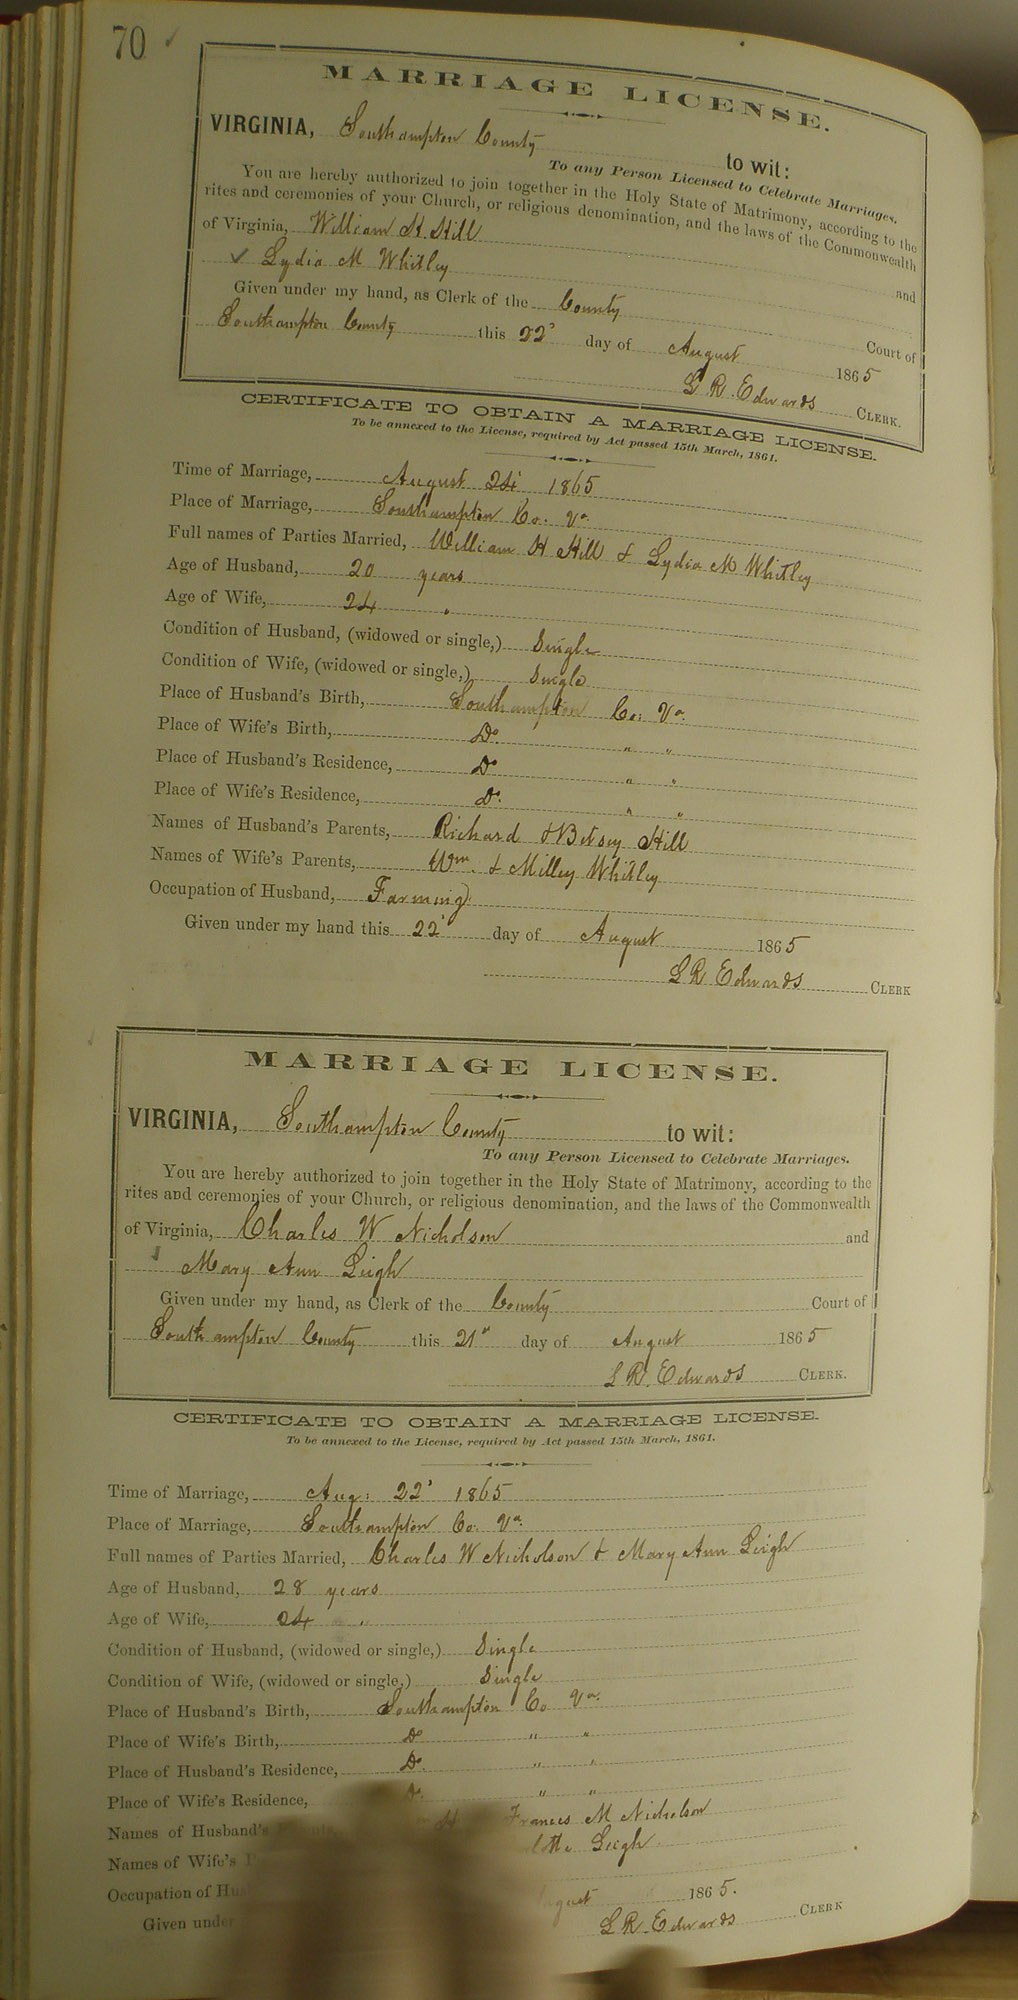 70
MARRIAGE LICENSE.
VIRGINIA, Southampton County to wit:
To any Person Licensed to Celebrate Marriages.
You are hereby authorized to join together in the Holy State of Matrimony, according to the
rites and ceremonies of your Church, or religious denomination, and the laws of the Commonwealth
of Virginia, William H. Hill and
Lydia M Whitley
Given under my hand, as Clerk of the County Court of
Southampton County this 22 day of August 1865
L R. Edwards CLERK.
CERTIFICATE TO OBTAIN A MARRIAGE LICENSE.
To be annexed to the License, required by Act passed 15th March, 1861.
Time of Marriage, August 24 1865
Place of Marriage, Southampton Co. Va
Full names of Parties Married, William H Hill & Lydia M Whitley
Age of Husband, 20 years
Age of Wife, 24 "
Condition of Husband, (widowed or single,) Single
Condition of Wife, (widowed or single,) Single
Place of Husband's Birth, Southampton Co: Va.
Place of Wife's Birth, Do " "
Place of Husband's Residence, Do " "
Place of Wife's Residence, Do " "
Names of Husband's Parents, Richard & Betsey Hill
Names of Wife's Parents, Wm. & Milley Whitley
Occupation of Husband, Farming
Given under my hand this 22 day of August 1865
L R Edwards CLERK
MARRIAGE LICENSE.
VIRGINIA, Southampton County to wit:
To any Person Licensed to Celebrate Marriages.
You are hereby authorized to join together in the Holy State of Matrimony, according to the
rites and ceremonies of your Church, or religious denomination, and the laws of the Commonwealth
of Virginia, Charles W Nicholson and
Mary Ann Leigh
Given under my hand, as Clerk of the County Court of
Southampton County this 21st day of August 1865
L R. Edwards CLERK.
CERTIFICATE TO OBTAIN A MARRIAGE LICENSE.
To be annexed to the License, required by Act passed 15th March, 1861.
Time of Marriage, Aug: 22 1865
Place of Marriage, Southampton Co. Va.
Full names of Parties Married, Charles W Nicholson & Mary Ann Leigh
Age of Husband, 28 years
Age of Wife, 24 "
Condition of Husband, (widowed or single,) Single
Condition of Wife, (widowed or single,) Single
Place of Husband's Birth, Southampton Co Va.
Place of Wife's Birth, Do " "
Place of Husband's Residence, Do " "
Place of Wife's Residence, " "
Names of Husband's Frances M Nicholson
Names of Wife's Leigh
Occupation of
Given 1865.
L R. Edwards CLERK